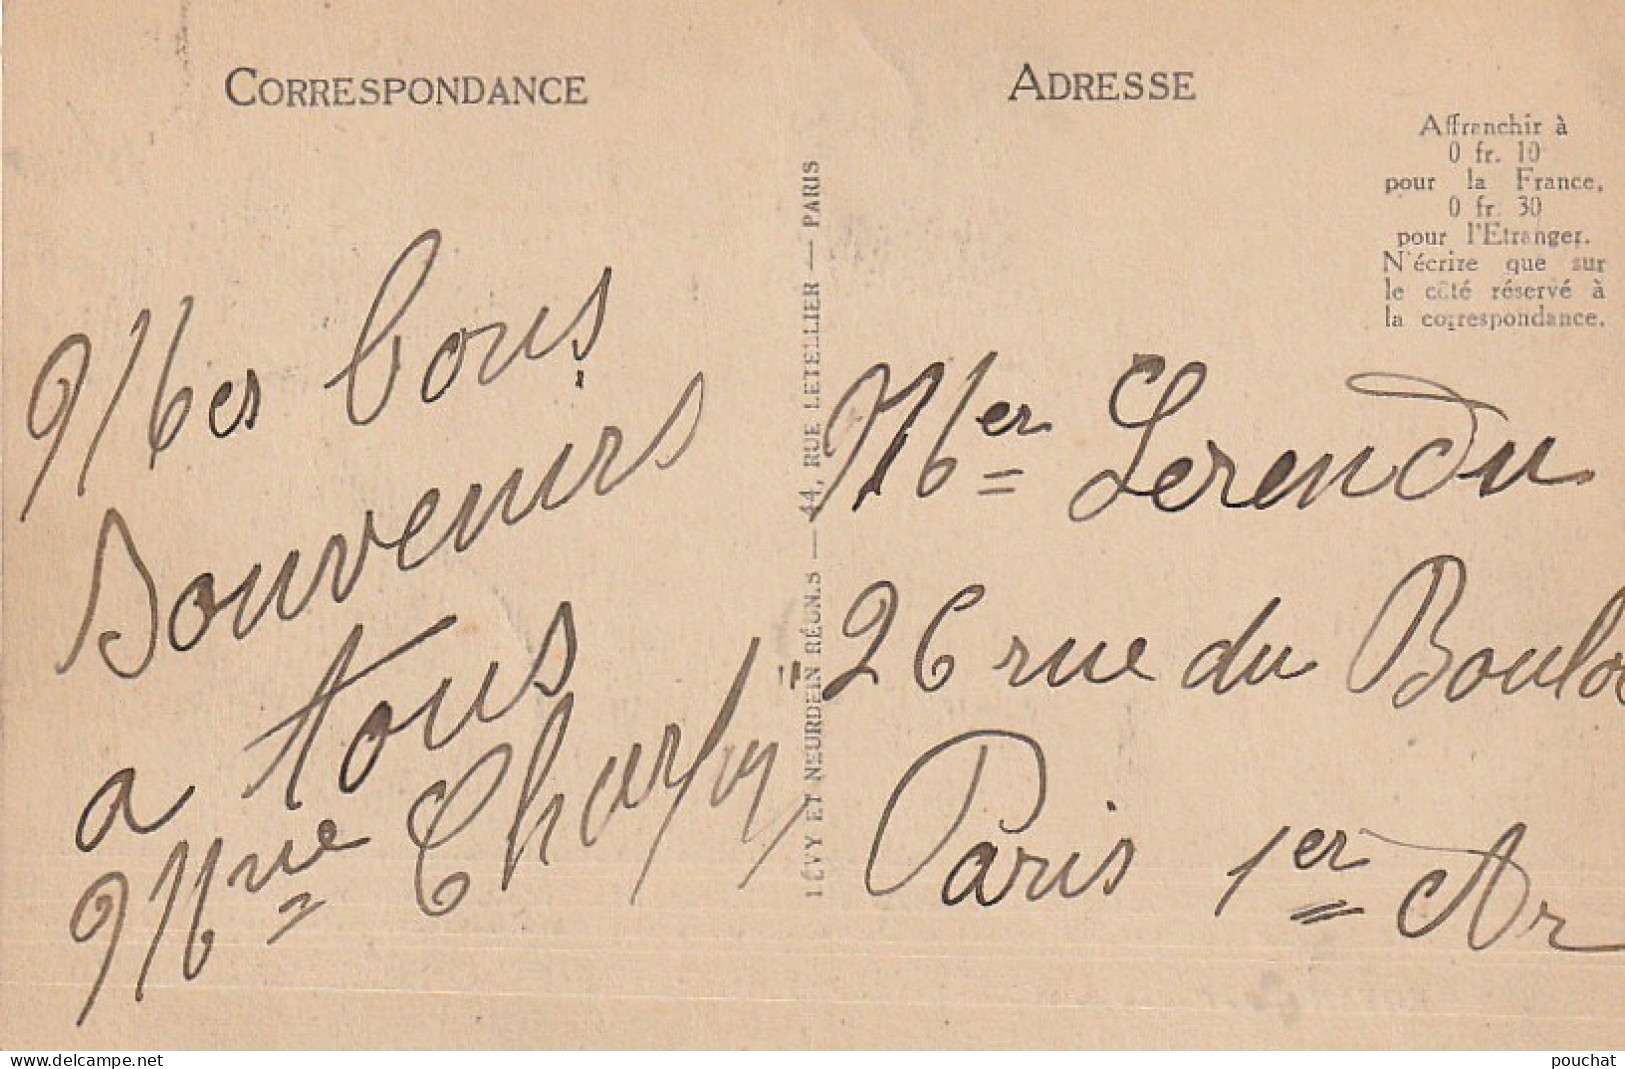 CORRESPONDANCE
Mes bons
souvenirs
a tous
Mme Charly
LÉVY ET NEURDEIN RÉUNIS — 44, RUE LETELLIER — PARIS
ADRESSE
Affranchir à
0 fr. 10
pour la France,
0 fr. 30
pour l'Etranger.
N'écrire que sur
le côté réservé à
la correspondance.
Mer Lerendu
26 rue du Boulo
Paris 1er Ar
www.delcampe.net
pouchat